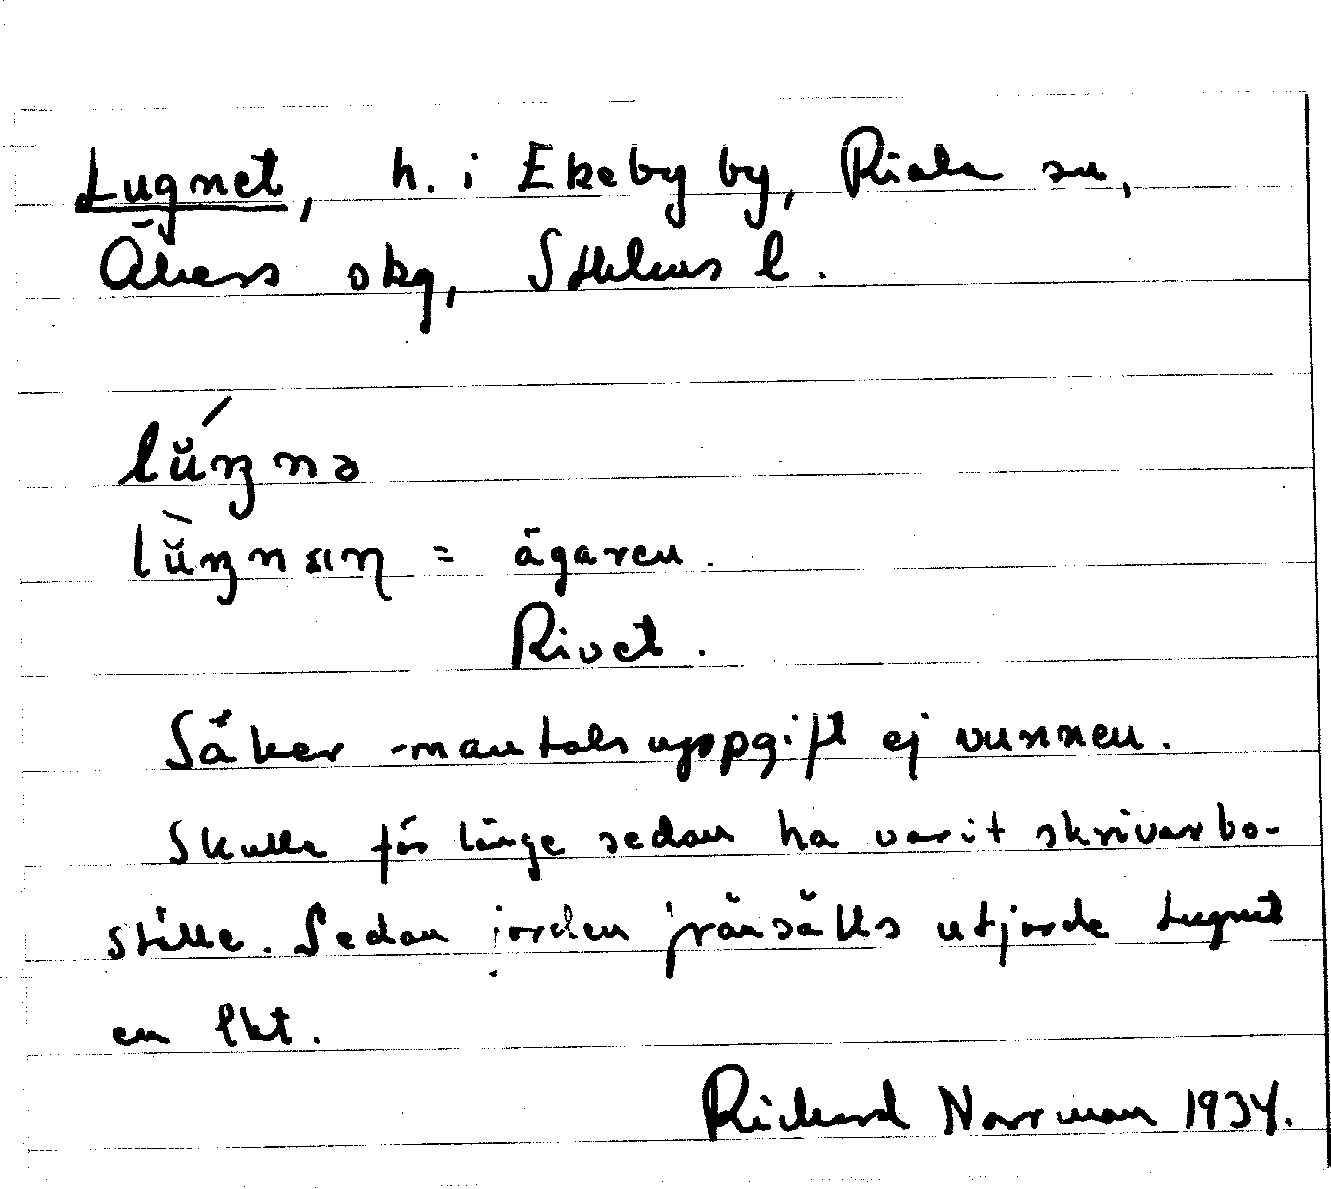 Lugnet, h. i Ekeby by, Riala sn,
Åkers skg, Sthlms l.
lú̆ŋnə
lù̆ŋnsıŋ = ägaren.
Rivet.
Säker mantalsuppgift ej vunnen.
Skulle för länge sedan ha varit skrivarbo-
ställe. Sedan jorden frånsålts utgjorde Lugnet
en lht.
Richard Norrman 1934.